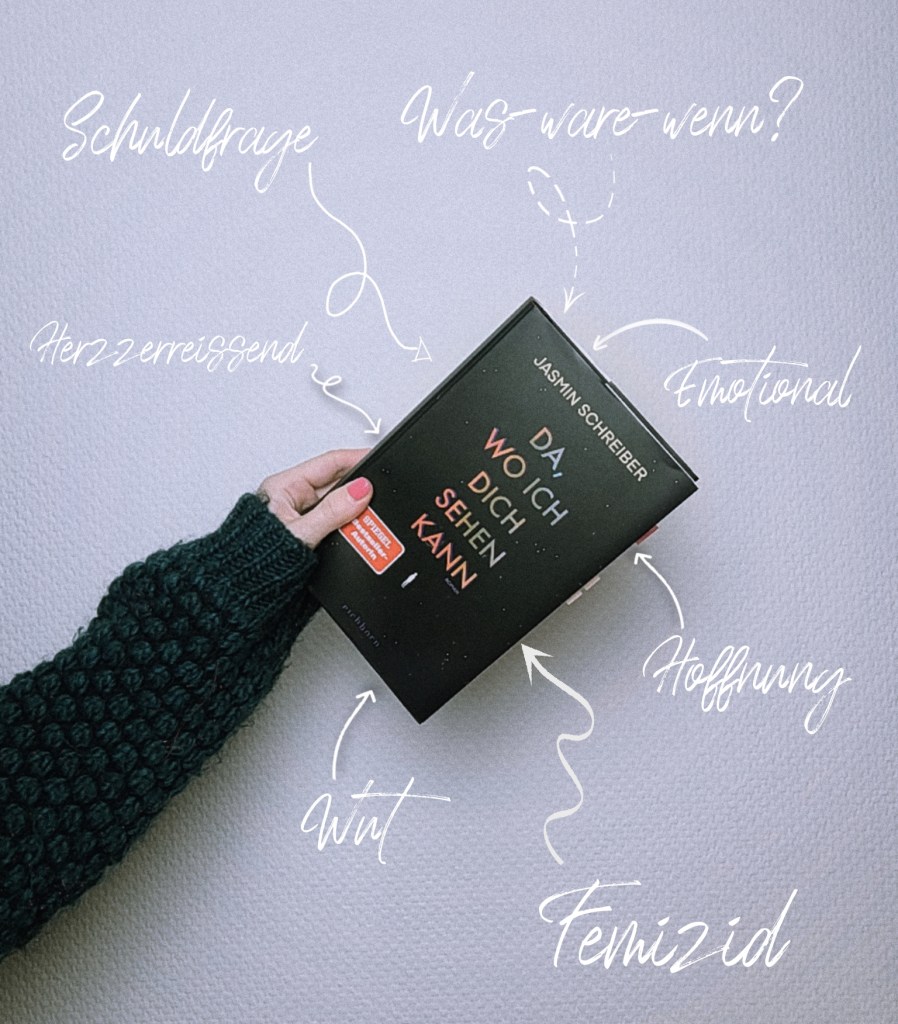 Schuldfrage
Was-ware-wenn?
Herzzerreissend
Emotional
JASMIN SCHREIBER
DA,
WO ICH
DICH
SEHEN
KANN
ROMAN
SPIEGEL
Bestseller-
Autorin
eichborn
Hoffnung
Wut
Femizid